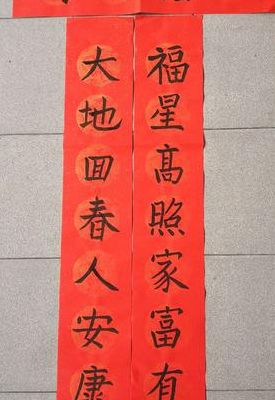 福星高照家富有
大地回春人安康